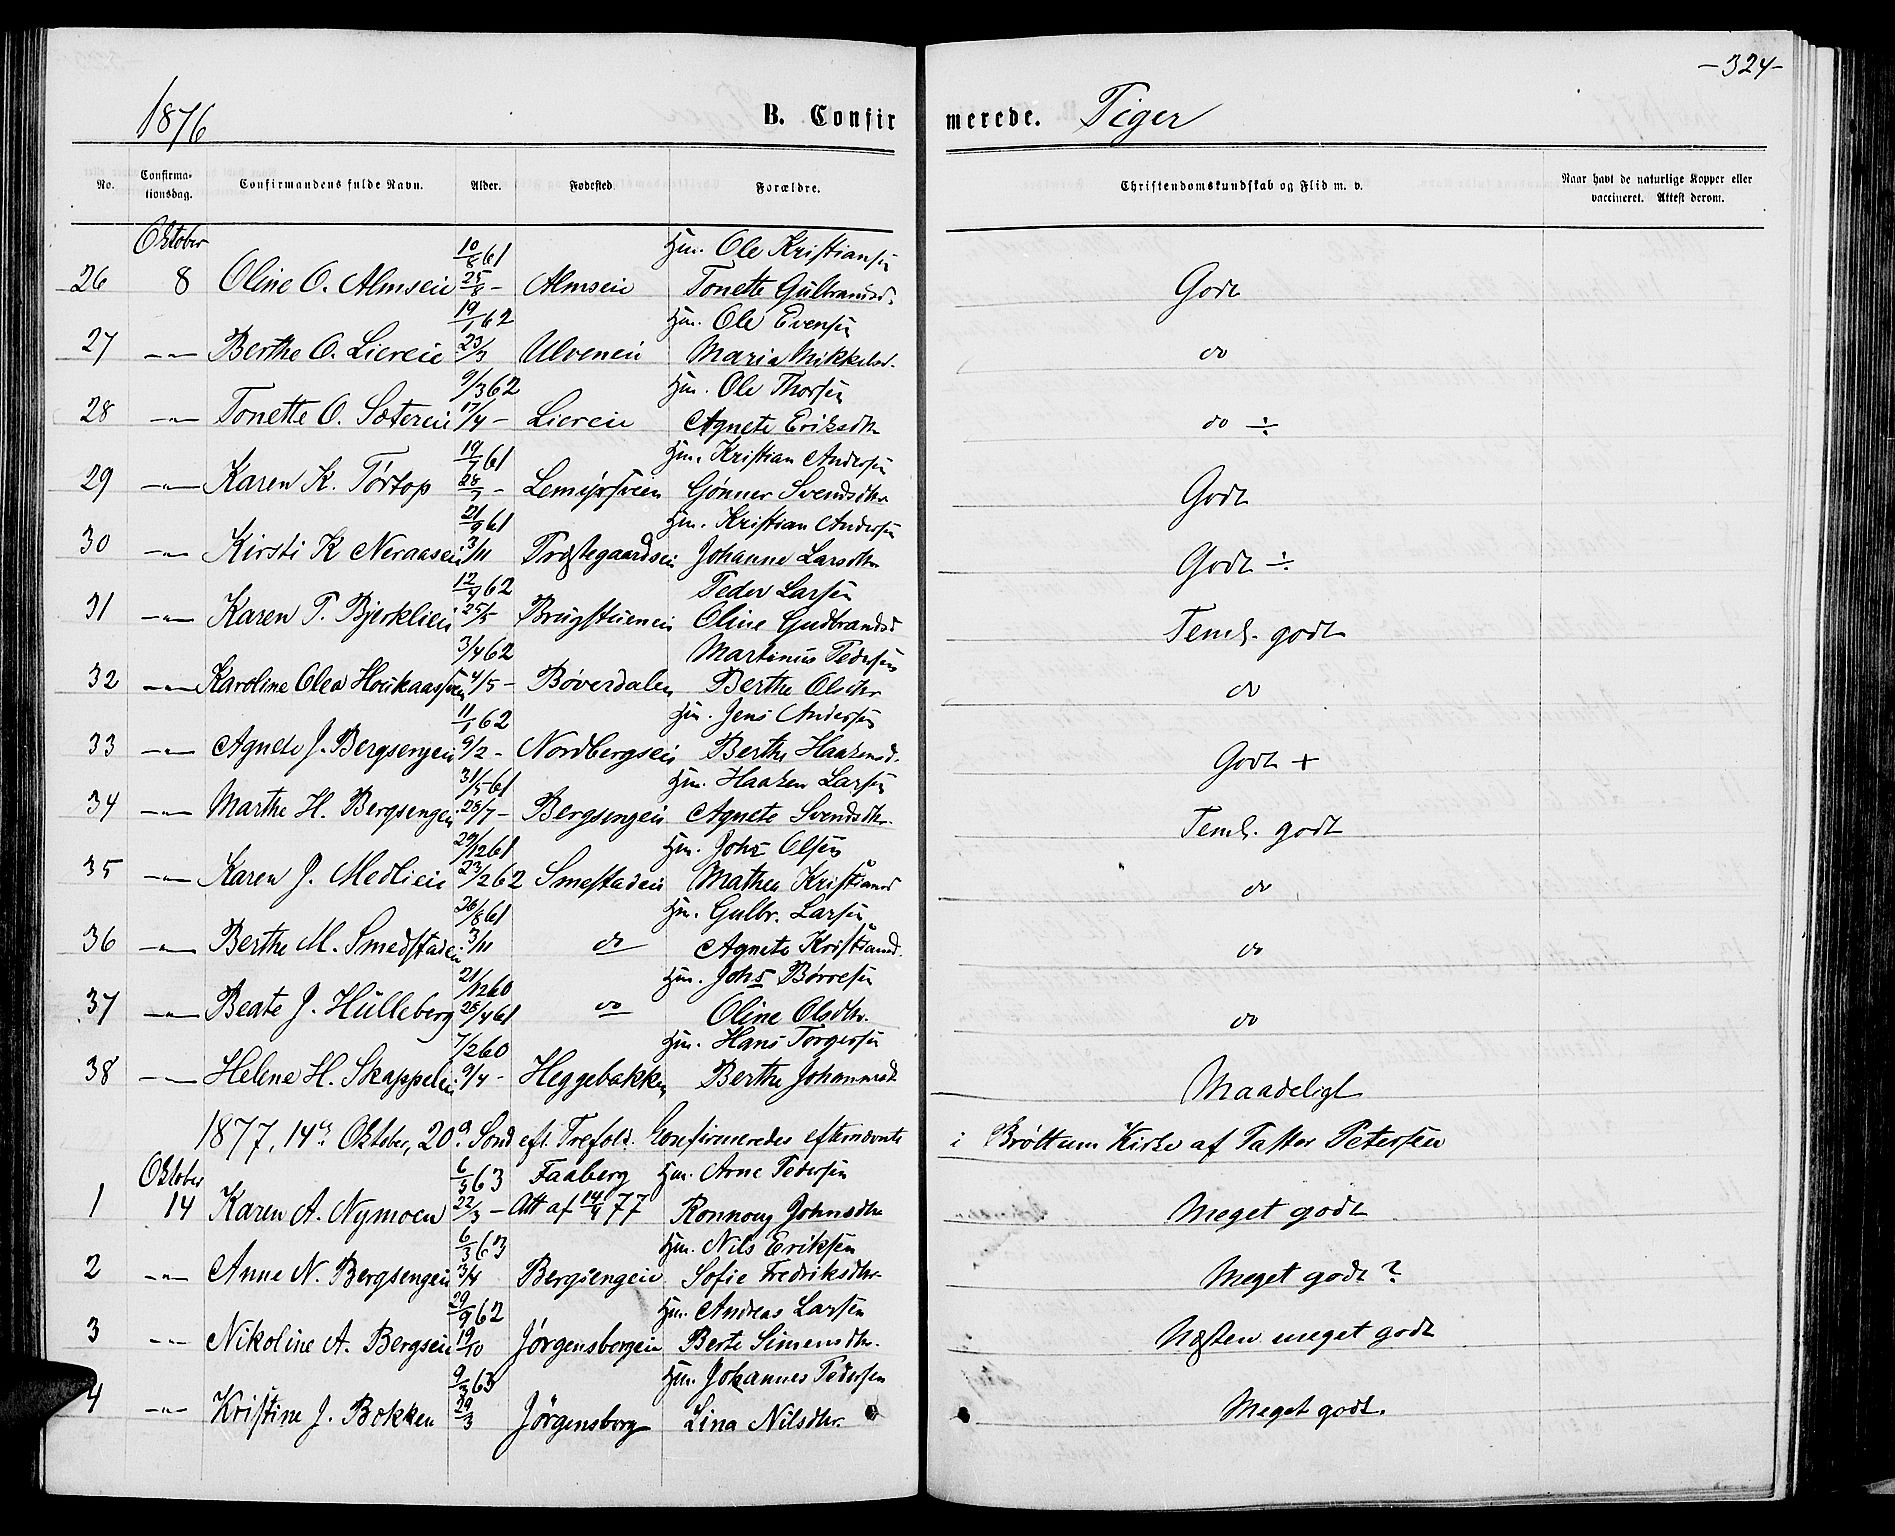 -324-
1876 B. Confirmerede. Piger
No. Confirmationsdag. Confirmandens fulde Navn. Alder. Fødested. Forældre. Christendomskundskab og Flid m. v. Naar havt de naturlige Kopper eller vaccineret. Attest derom.
Oktober 10/8 61 Hm. Ole Kristiansen
26 8 Oline O. Almseie 25/8 - Almseie Tonette Gulbrandsd. Godt
19/1 62 Hm. Ole Evensen
27 -"- Berthe O. Liereie 23/3 Ulveneie Maria Mikkelsd. do
9/3 62 Hm. Ole Thorsen
28 -"- Tonette O. Sætereie 17/4 - Liereie Agnete Eriksdtr do ÷
19/7 61 Hm. Kristian Andersen
29 -"- Karen K. Tørtop 28/7 - Gønner Svendsdtr Godt
21/9 61 Hm. Kristian Andersen
30 -"- Kirsti K Neraaseie 3/11 Præstegaardseie Johanne Larsdtr Godt ÷
12/4 62 Peder Larsen
31 -"- Karen P. Bjerklien 25/5 Brugstueneie Oline Gudbrandsd Teml. godt
3/4 62 Martinus Pedersen
32 -"- Karoline Olea 4/5 - Bøverdalen Berthe Olsdtr do
11/1 62 Hm. Jens Andersen
33 -"- Agnete J. Bergsengeie 9/2 - Nordbergseie Berthe Haakensd. Godt +
31/5 61 Hm. Haaken Larsen
34 -"- Marthe H. Bergsengeie 28/7 - Bergsengeie Agnete Svendsdtr. Teml. godt
29/12 61 Hm. Johs Olsen
35 -"- Karen J. Medlieie 23/2 62 Smestadeie Mathea Kristiansd do
26/8 61 Hm. Gulbr. Larsen
36 -"- Berthe M. Smedstadeie 3/11 do Agnete Kristiansd. do
21/12 60 Hm. Johs Børresen
37 -"- Beate J. Hulleberg 28/4 61 do Oline Olsdtr. do
7/2 60 Hm. Hans Torgersen
38 -"- Helene H. Skappeleie 9/4 - Heggebakken Berthe Johannesd Maadeligt
1877, 14de Oktober, 20de Sønd eft. Trefold. Konfirmeredes efternævnte i Brøttum Kirke af Pastor Petersen
Oktober 6/3 63 Faaberg Hm. Arne Pedersen
1 14 Karen A. Nymoen 22/3 - Att af 14/4 77 Ronnoug Johnsdtr Meget godt
6/3 63 Hm. Nils Eriksen
2 -"- Anne N. Bergsengeie 3/4 Bergsengeie Sofie Fredriksdtr Meget godt ?
29/9 62 Hm. Andreas Larsen
3 -"- Nikoline A. Bergseie 19/10 Jørgensbergeie Berte Simensdtr. Næsten meget godt
9/3 63 Hm. Johannes Pedersen
4 -"- Kristine J. Bakken 29/3 Jørgensberg Lina Nilsdtr. Meget godt.